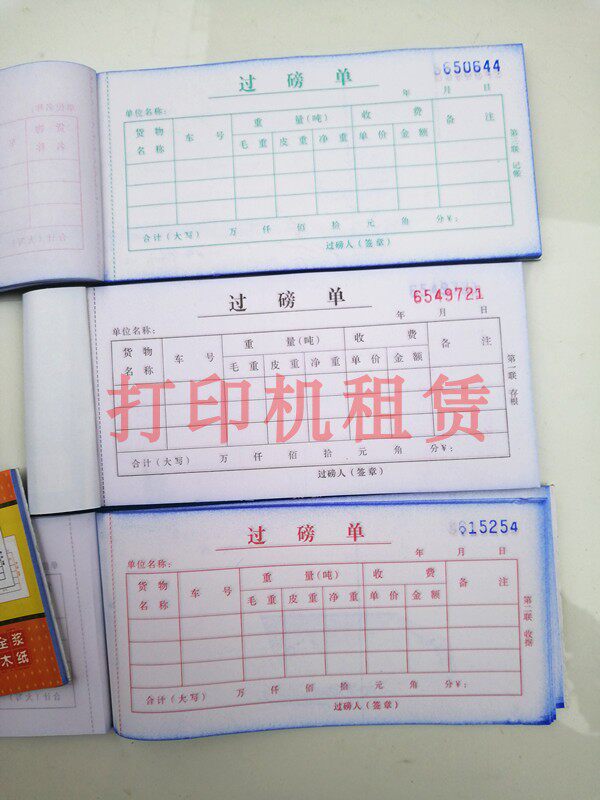 过磅单
5650644
单位名称:
年 月 日
货物名称 车号 重量(吨) 收费 备注
毛重 皮重 净重 单价 金额
合计(大写) 万 仟 佰 拾 元 角 分¥:
过磅人(签章)
第三联 记帐
过磅单
6549721
单位名称:
年 月 日
货物名称 车号 重量(吨) 收费 备注
毛重 皮重 净重 单价 金额
合计(大写) 万 仟 佰 拾 元 角 分¥:
过磅人(签章)
第一联 存根
打印机租赁
过磅单
615254
单位名称:
年 月 日
货物名称 车号 重量(吨) 收费 备注
毛重 皮重 净重 单价 金额
合计(大写) 万 仟 佰 拾 元 角 分¥:
过磅人(签章)
第二联 收据
全浆
木纸